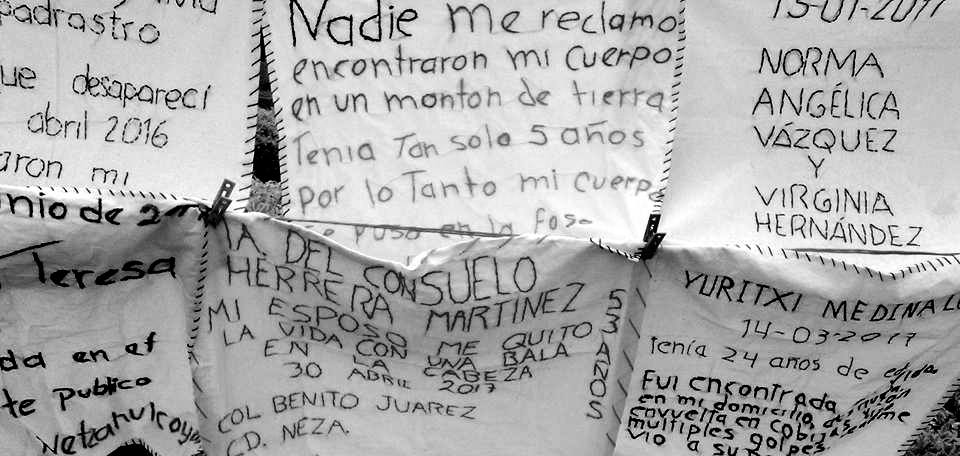 padrastro
ue desaparecí
abril 2016
aron mi
Nadie me reclamo
encontraron mi cuerpo
en un monton de tierra
Tenia Tan solo 5 años
por lo Tanto mi cuerpo
puso en la fosa
15-01-2017
NORMA
ANGÉLICA
VÁZQUEZ
Y
VIRGINIA
HERNÁNDEZ
nio de
Teresa
da en el
te Publico
Netzahulcoyo
MA. DEL CONSUELO
HERRERA MARTINEZ
MI ESPOSO ME QUITO
LA VIDA CON UNA BALA
EN LA CABEZA
30 ABRIL 2017
53 AÑOS
COL BENITO JUAREZ
CD. NEZA.
YURITXI MEDINA LO
14-03-2017
Tenía 24 años de edad
Fui encontrada
en mi domicilio,
envuelta en cobijas
multiples golpes
vio a su